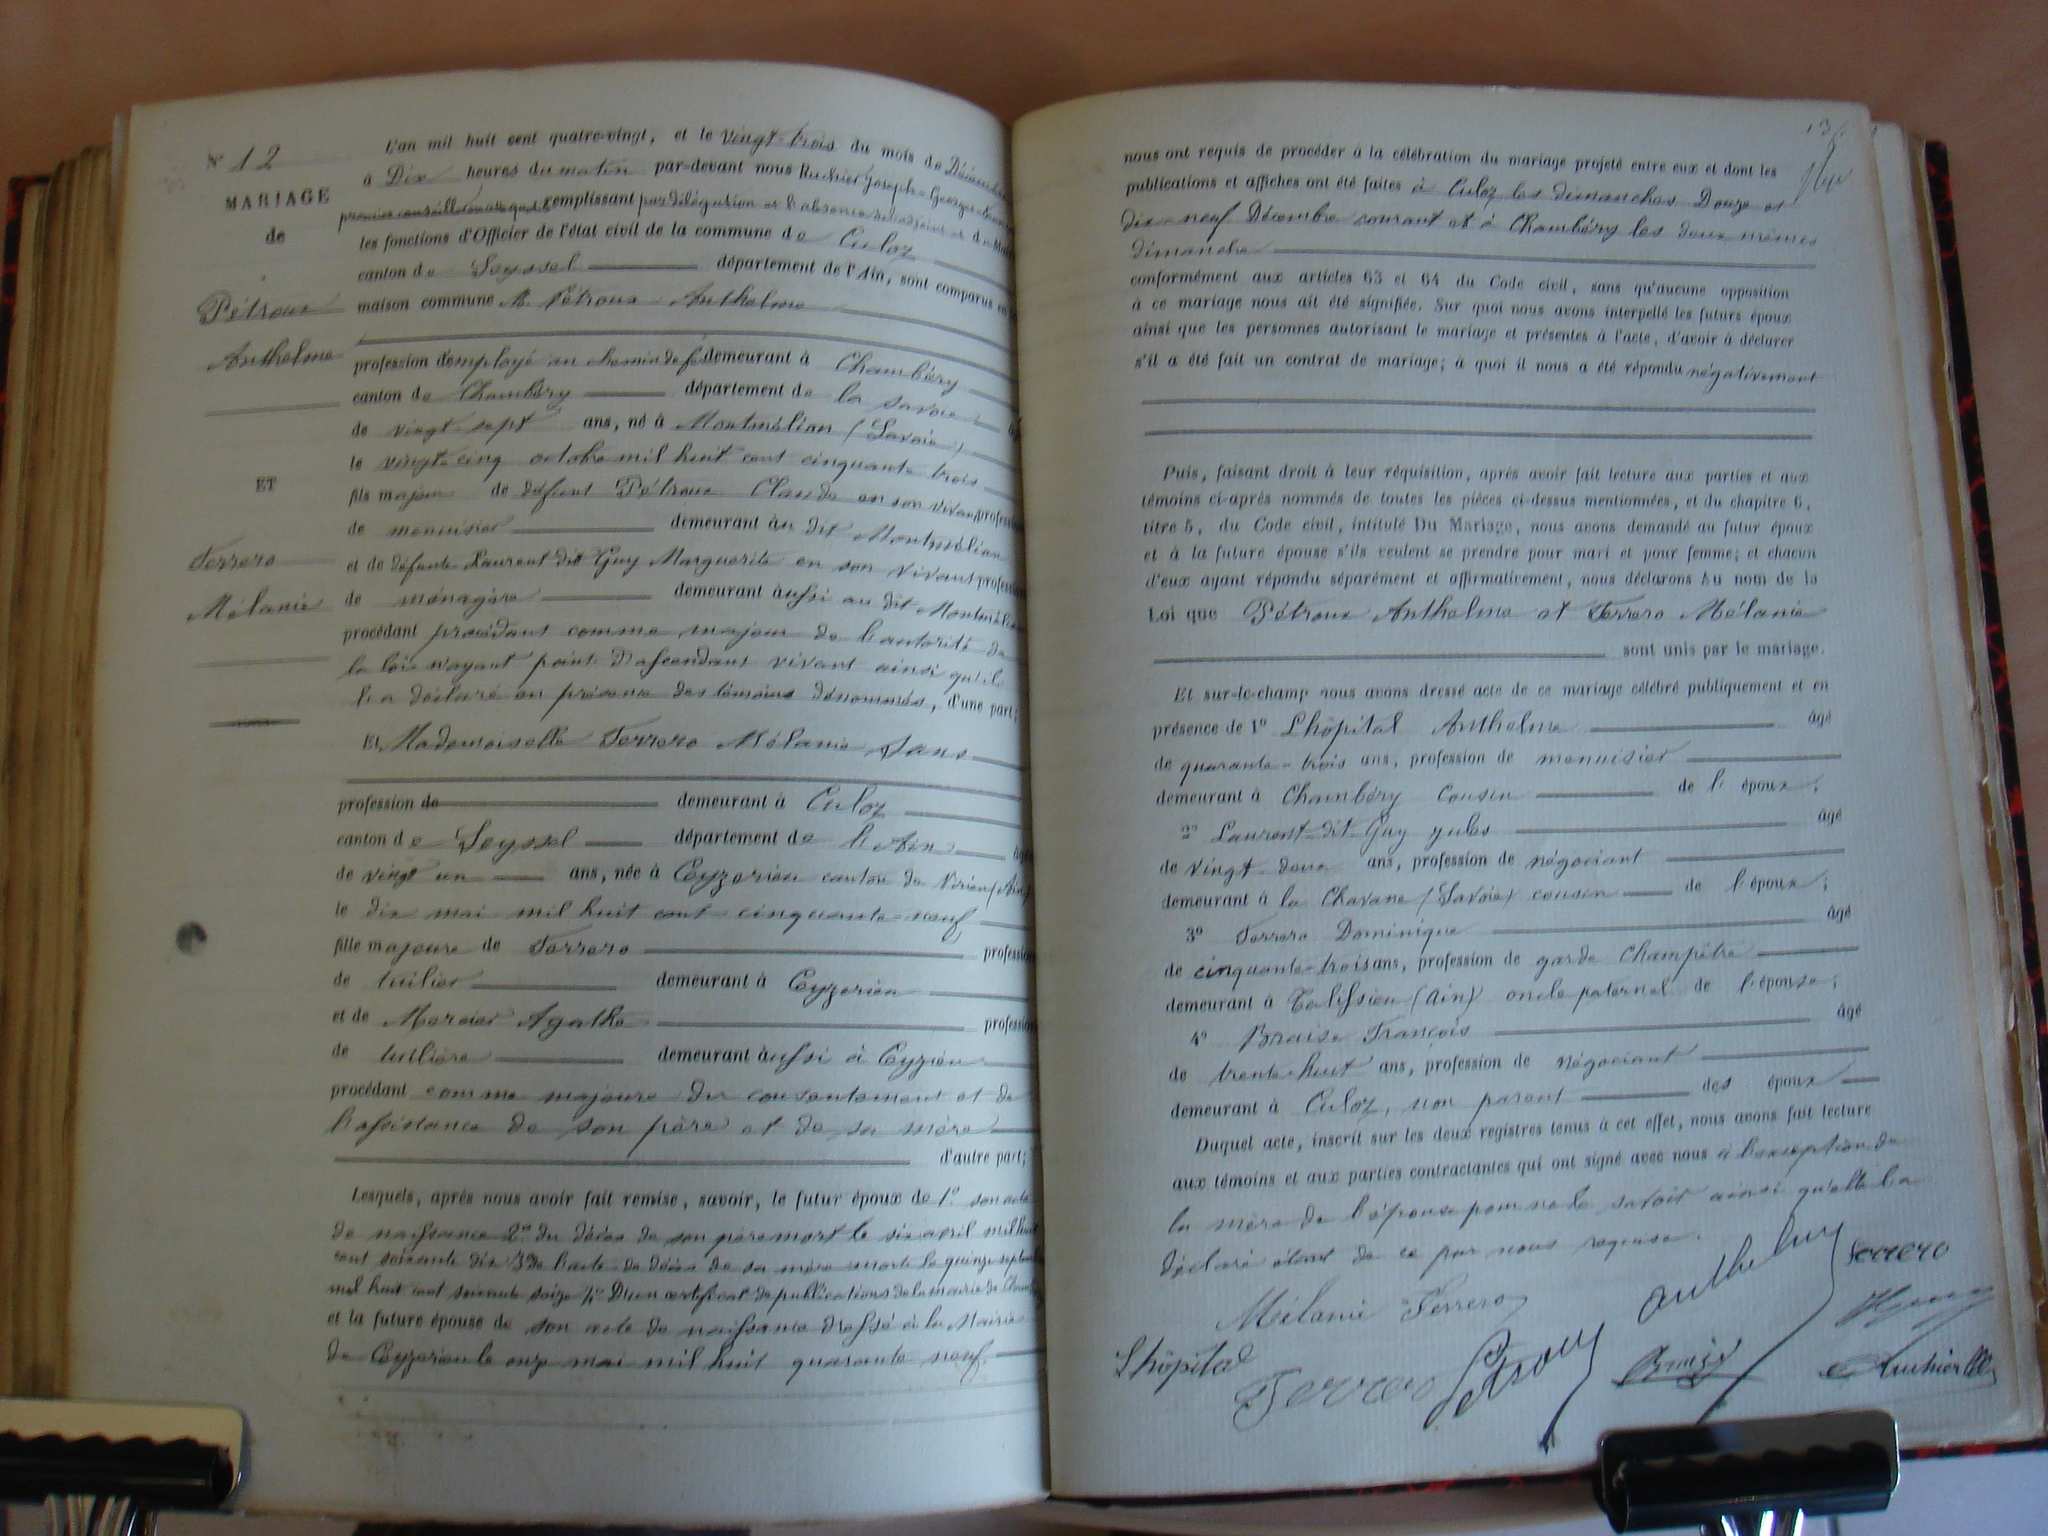 N° 12
MARIAGE
de
Pétroux
Anthelme
ET
Ferrero
Mélanie
L'an mil huit cent quatre-vingt, et le vingt-trois du mois de Décembre
à Dix heures du matin par-devant nous Ruchier Joseph-Georges
remplissant par délégation et l'absence de l'adjoint et du Maire
les fonctions d'Officier de l'état civil de la commune de Culoz
canton de Seyssel département de l'Ain, sont comparus en la
maison commune M. Pétroux Anthelme
profession d'employé au chemin de fer demeurant à Chambéry
canton de Chambéry département de la Savoie âgé
de vingt-sept ans, né à Montmélian (Savoie)
le vingt-cinq octobre mil huit cent cinquante trois
fils majeur de défunt Pétroux Claude en son vivant profession
de menuisier demeurant au dit Montmélian
et de défunte Laurent dit Guy Marguerite en son vivant profession
de ménagère demeurant aussi au dit Montmélian
procédant procédant comme majeur de l'autorité de
la loi n'ayant point d'ascendant vivant ainsi qu'il
l'a déclaré en présence des témoins dénommés, d'une part;
Et Mademoiselle Ferrero Mélanie sans
profession de demeurant à Culoz
canton de Seyssel département de l'Ain âgée
de vingt un ans, née à Ceyzerieu canton de Virieu (Ain)
le dix mai mil huit cent cinquante-neuf
fille majeure de Ferrero profession
de tuilier demeurant à Ceyzerieu
et de Mercier Agathe profession
de tuilière demeurant aussi à Ceyzerieu
procédant comme majeure du consentement et de
l'assistance de son père et de sa mère
d'autre part;
Lesquels, après nous avoir fait remise, savoir, le futur époux de 1° son acte
de naissance 2° du décès de son père mort le six avril mil huit
cent soixante dix 3° de l'acte de décès de sa mère morte le quinze septembre
mil huit cent soixante seize 4° D'un certificat de publications de la mairie de Chambéry
et la future épouse de son acte de naissance dressé à la Mairie
de Ceyzerieu le onze mai mil huit quarante neuf.
nous ont requis de procéder à la célébration du mariage projeté entre eux et dont les
publications et affiches ont été faites à Culoz les dimanches Douze et
dix-neuf Décembre courant et à Chambéry les deux mêmes
dimanche
conformément aux articles 63 et 64 du Code civil, sans qu'aucune opposition
à ce mariage nous ait été signifiée. Sur quoi nous avons interpellé les futurs époux
ainsi que les personnes autorisant le mariage et présentes à l'acte, d'avoir à déclarer
s'il a été fait un contrat de mariage; à quoi il nous a été répondu négativement
Puis, faisant droit à leur réquisition, après avoir fait lecture aux parties et aux
témoins ci-après nommés de toutes les pièces ci-dessus mentionnées, et du chapitre 6,
titre 5, du Code civil, intitulé Du Mariage, nous avons demandé au futur époux
et à la future épouse s'ils veulent se prendre pour mari et pour femme; et chacun
d'eux ayant répondu séparément et affirmativement, nous déclarons au nom de la
Loi que Pétroux Anthelme et Ferrero Mélanie
sont unis par le mariage.
Et sur-le-champ nous avons dressé acte de ce mariage célébré publiquement et en
présence de 1° Lhôpital Anthelme âgé
de quarante-trois ans, profession de menuisier
demeurant à Chambéry cousin de l'époux;
2° Laurent dit Guy Jules âgé
de vingt deux ans, profession de négociant
demeurant à la Chavane (Savoie) cousin de l'époux;
3° Ferrero Dominique âgé
de cinquante-trois ans, profession de garde champêtre
demeurant à Talissieu (Ain) oncle paternel de l'épouse;
4° Braise François âgé
de trente-huit ans, profession de négociant
demeurant à Culoz, non parent des époux
Duquel acte, inscrit sur les deux registres tenus à cet effet, nous avons fait lecture
aux témoins et aux parties contractantes qui ont signé avec nous à l'exception de
la mère de l'épouse pour ne le savoir ainsi qu'elle l'a
déclaré étant de ce par nous requise.
Mélanie Ferrero
Ferrero
Lhôpital
Ferrero Pétroux
Ruchier